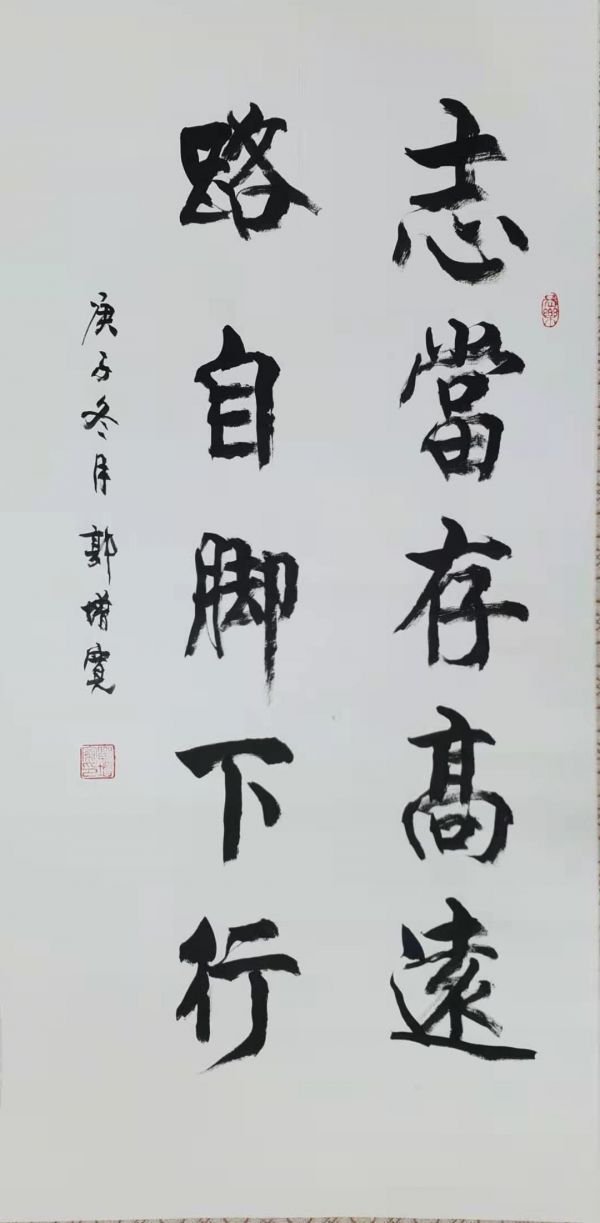 志當存高遠
路自脚下行
庚子冬月 郭增寛